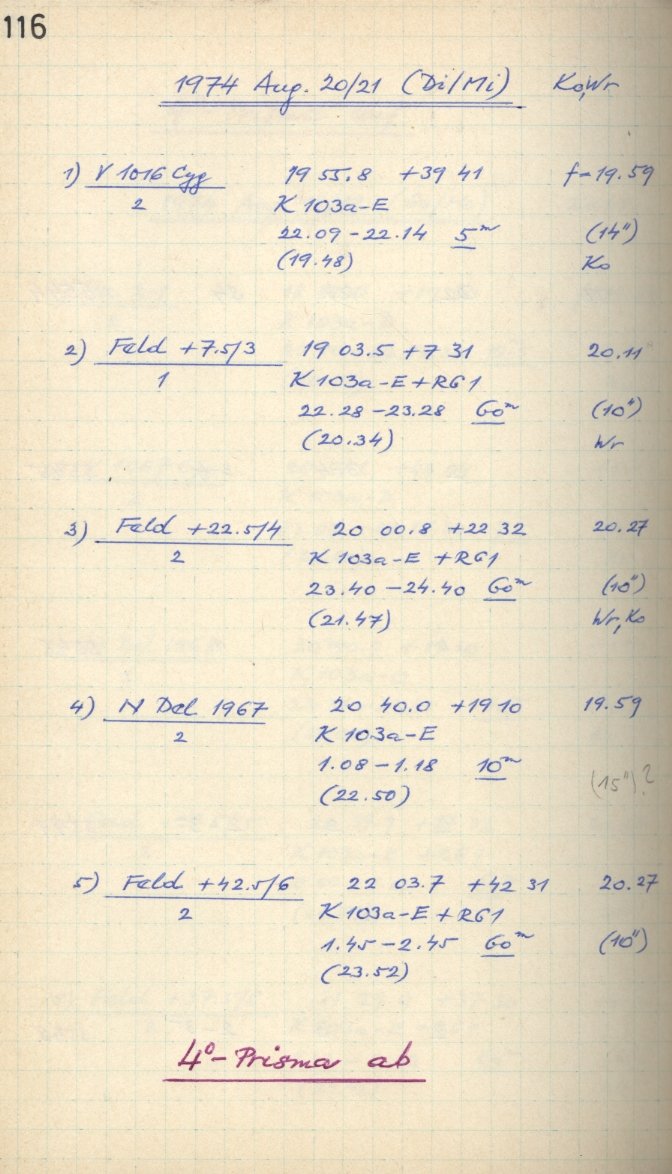 116
1974 Aug. 20/21 (Di/Mi) Ko,Wr
1) V 1016 Cyg 19 55.8 +39 41 f=19.59
2 K 103a-E
22.09-22.14 5ᵐ (14")
(19.48) Ko
2) Feld +7.5/3 19 03.5 +7 31 20.11
1 K 103a-E+RG1
22.28-23.28 60ᵐ (10")
(20.34) Wr
3) Feld +22.5/4 20 00.8 +22 32 20.27
2 K 103a-E +RG1
23.40-24.40 60ᵐ (10")
(21.47) Wr,Ko
4) N Del 1967 20 40.0 +19 10 19.59
2 K 103a-E
1.08-1.18 10ᵐ (15")?
(22.50)
5) Feld +42.5/6 22 03.7 +42 31 20.27
2 K 103a-E+RG1
1.45-2.45 60ᵐ (10")
(23.52)
4°-Prisma ab